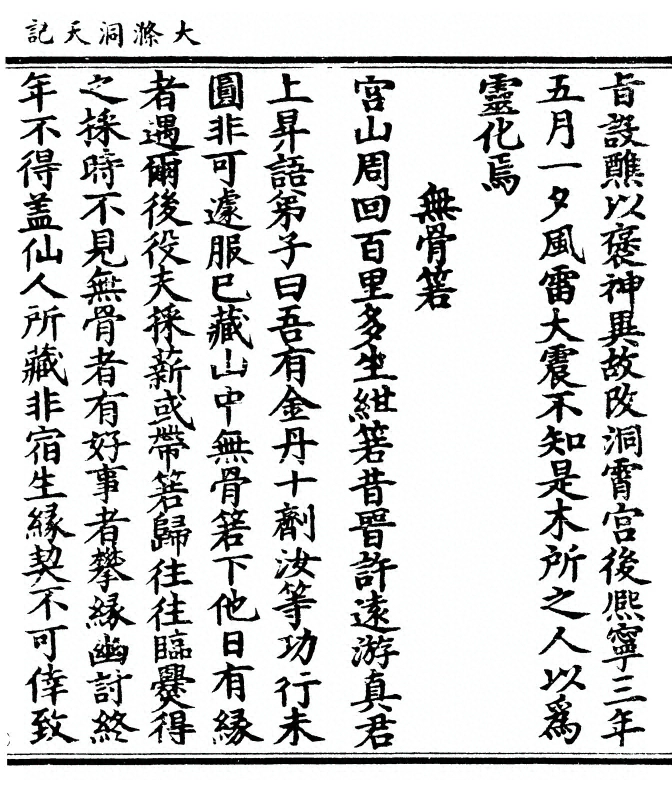 大滌洞天記
旨設醮以褒神異故改洞霄宮後熈寧三年
五月一夕風雷大震不知是木所之人以爲
靈化焉
無骨箬
宮山周回百里多生紺箬昔晉許遠游真君
上昇語弟子曰吾有金丹十劑汝等功行未
圓非可遽服已藏山中無骨箬下他日有緣
者遇爾後役夫採薪或帶箬歸往往臨爨得
之採時不見無骨者有好事者攀緣幽討終
年不得葢仙人所藏非宿生緣契不可倖致